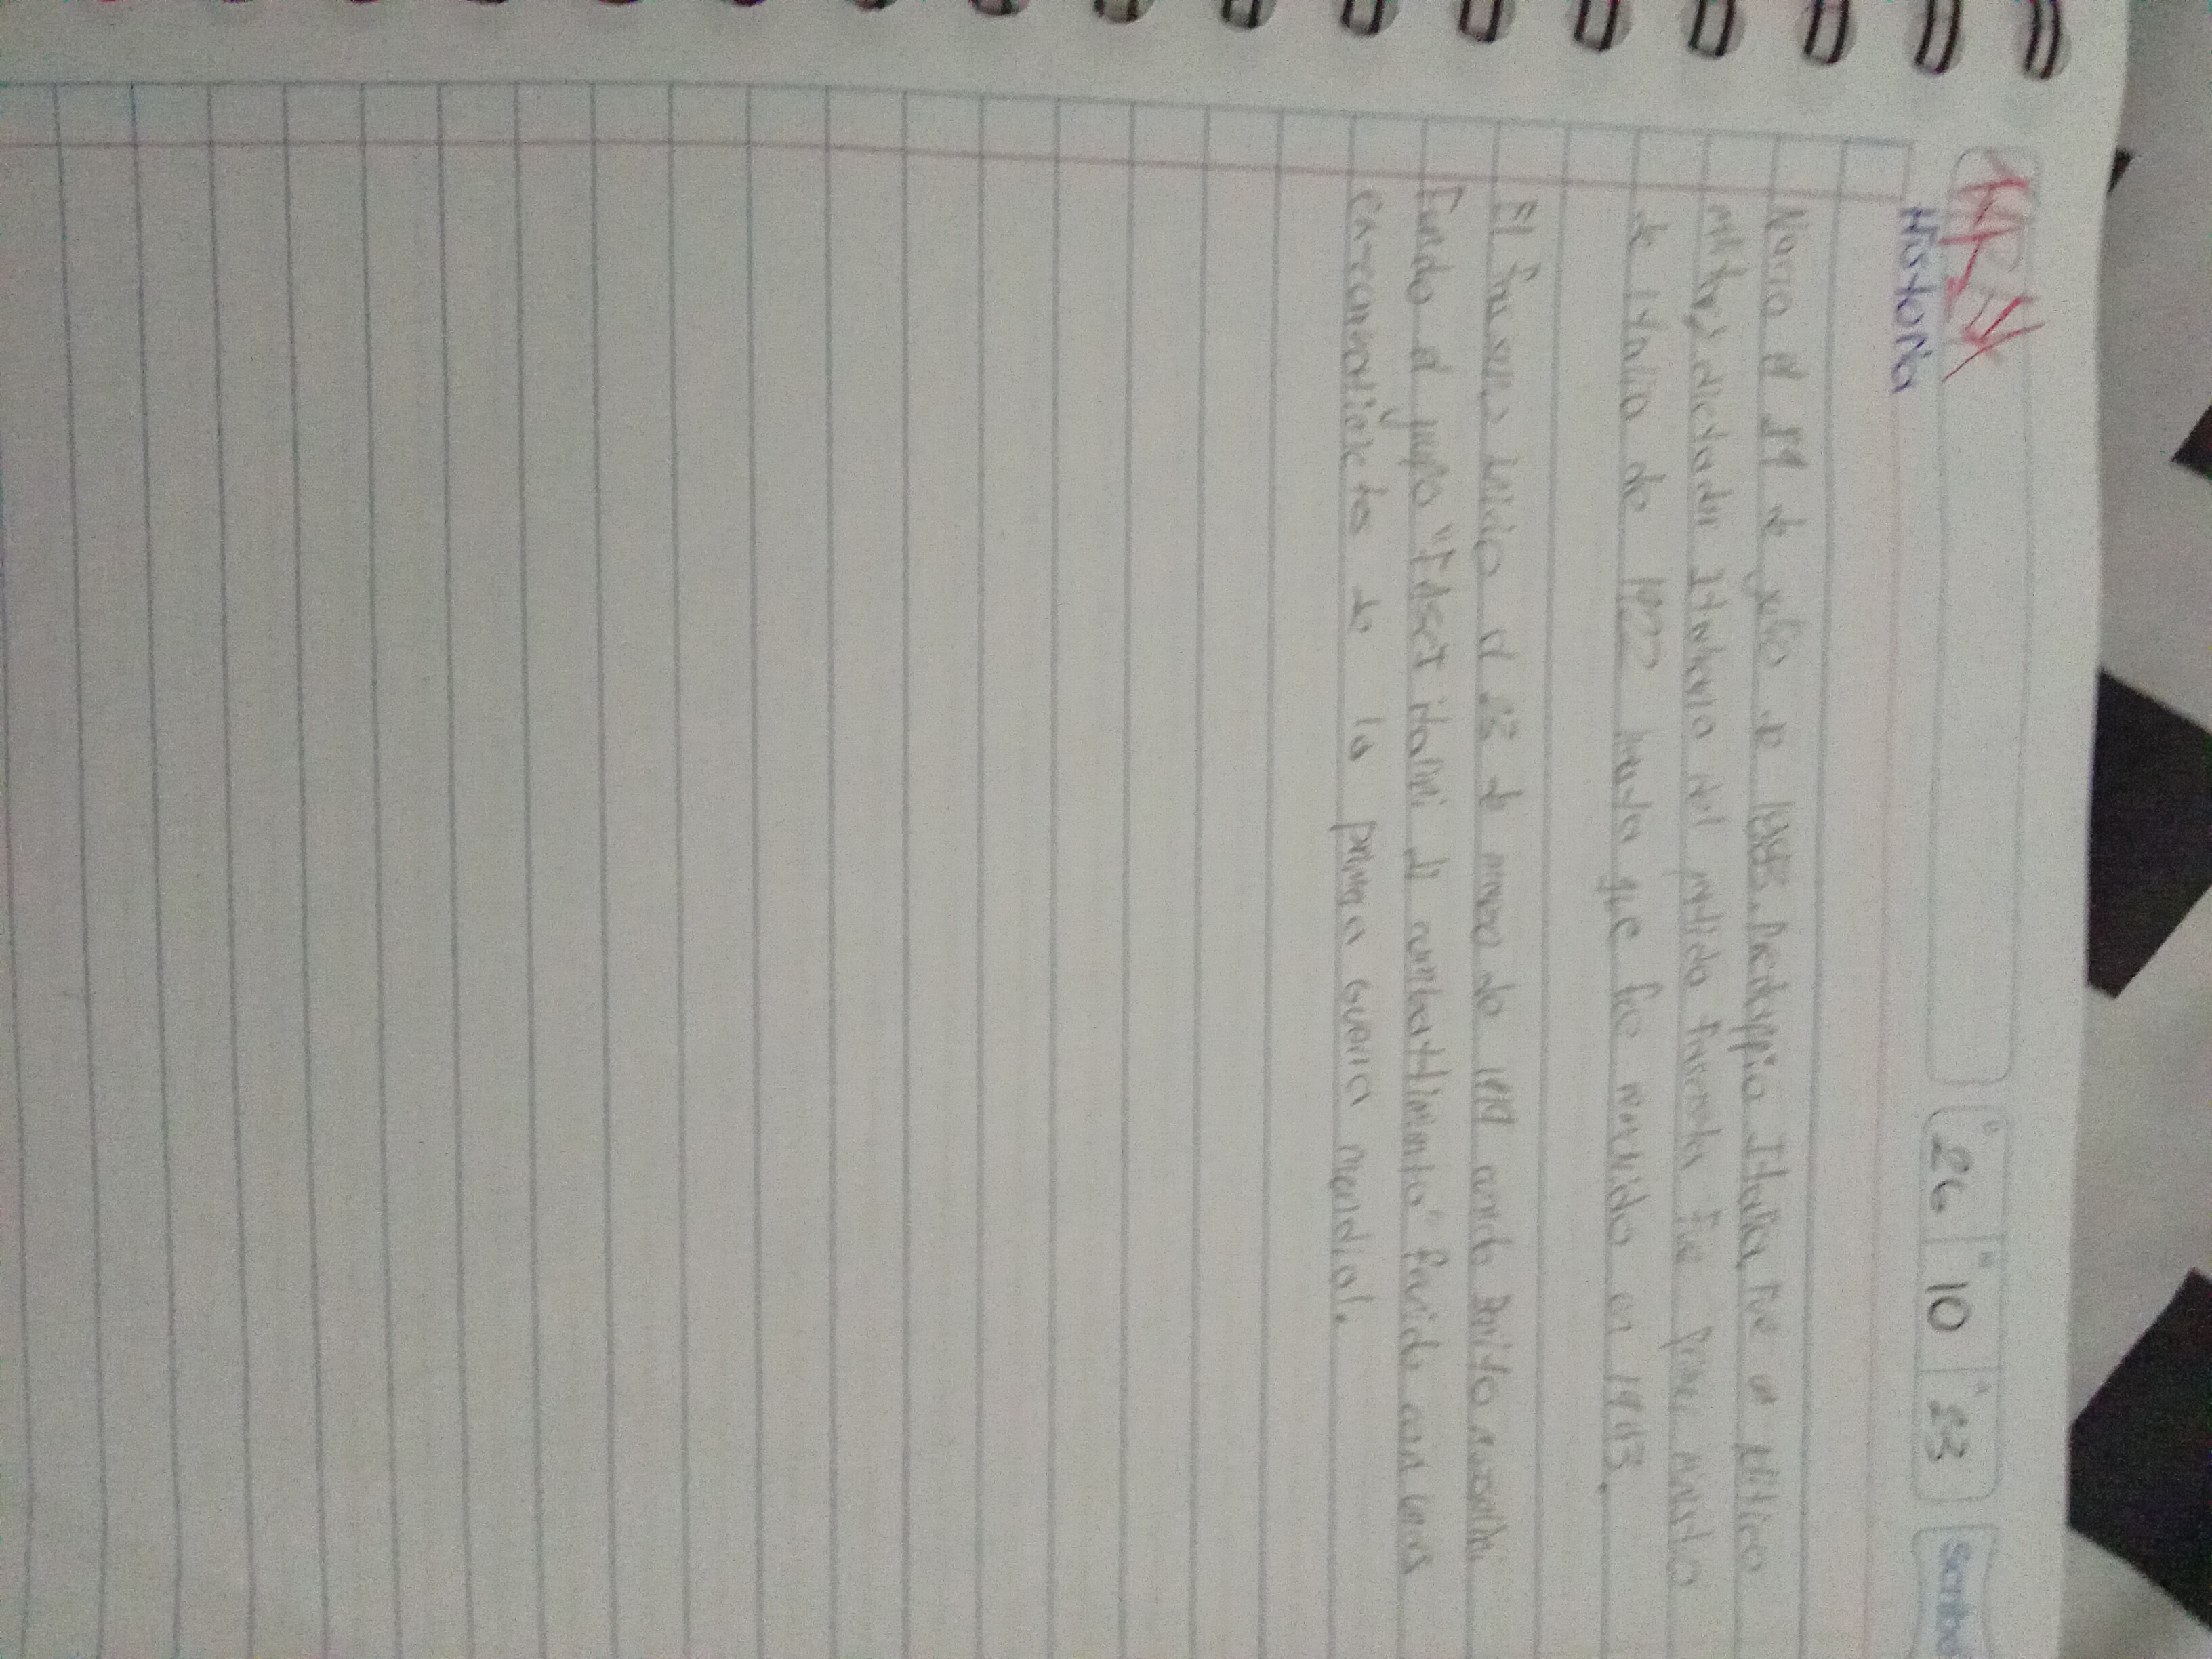 26 10 23
Scribe
Historia
Nacio el 29 de julio de 1883. Predappio Italia, Fue un politico
militar y dictador Italiano del partido fascista Fue primer ministro
de italia de 1922 hasta que fue

en 1943.
El fascismo inicio el 23 de marzo de 1919 cuando Benito mussolini
Fundo el grupo "FAscI italini di combattimento" Reunido con unos
ex-combatientes de la primera Guerra mundial.